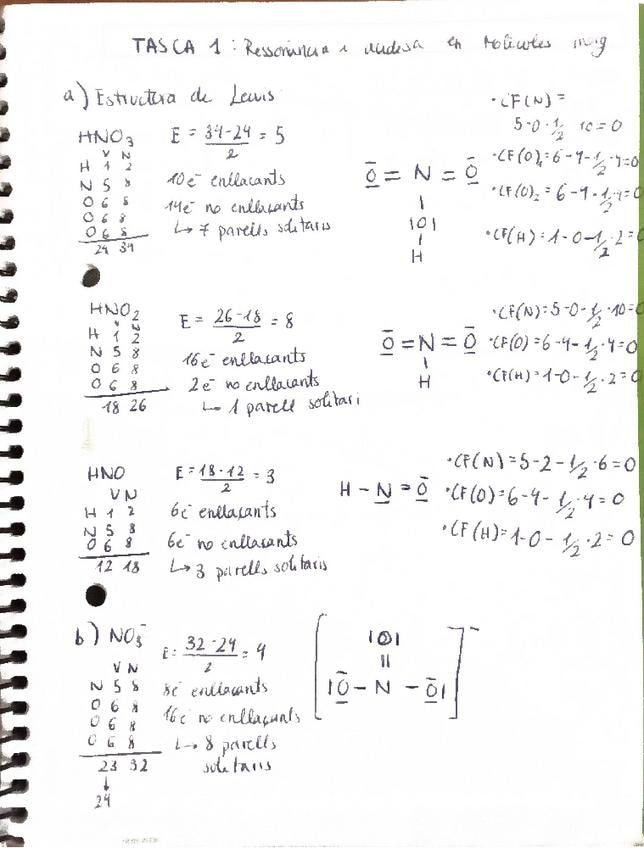 TASCA 1: Ressonància i duresa en molècules inorg
a) Estructura de Lewis
HNO₃
E = 34-24/2 = 5
V N
H 1 2
N 5 8
O 6 8
O 6 8
O 6 8
24 34
10e⁻ enllaçants
14e⁻ no enllaçants
↳ 7 parells solitaris
O = N = O
|O|
H
·CF(N) =
5-0-1/2·10=0
·CF(O)₁=6-4-1/2·4=0
·CF(O)₂=6-4-1/2·4=0
·CF(H)=1-0-1/2·2=0
HNO₂
V N
H 1 2
N 5 8
O 6 8
O 6 8
18 26
E = 26-18/2 = 8
16e⁻ enllaçants
2e⁻ no enllaçants
↳ 1 parell solitari
O = N = O
H
·CF(N)=5-0-1/2·10=0
·CF(O)=6-4-1/2·4=0
·CF(H)=1-0-1/2·2=0
HNO
V N
H 1 2
N 5 8
O 6 8
12 18
E = 18-12/2 = 3
6e⁻ enllaçants
6e⁻ no enllaçants
↳ 3 parells solitaris
H - N = O
·CF(N)=5-2-1/2·6=0
·CF(O)=6-4-1/2·4=0
·CF(H)=1-0-1/2·2=0
b) NO₃⁻
V N
N 5 8
O 6 8
O 6 8
O 6 8
23 32
↓
24
E = 32-24/2 = 4
8e⁻ enllaçants
16e⁻ no enllaçants
↳ 8 parells
solitaris
[ |O|
||
|O - N - O| ]⁻